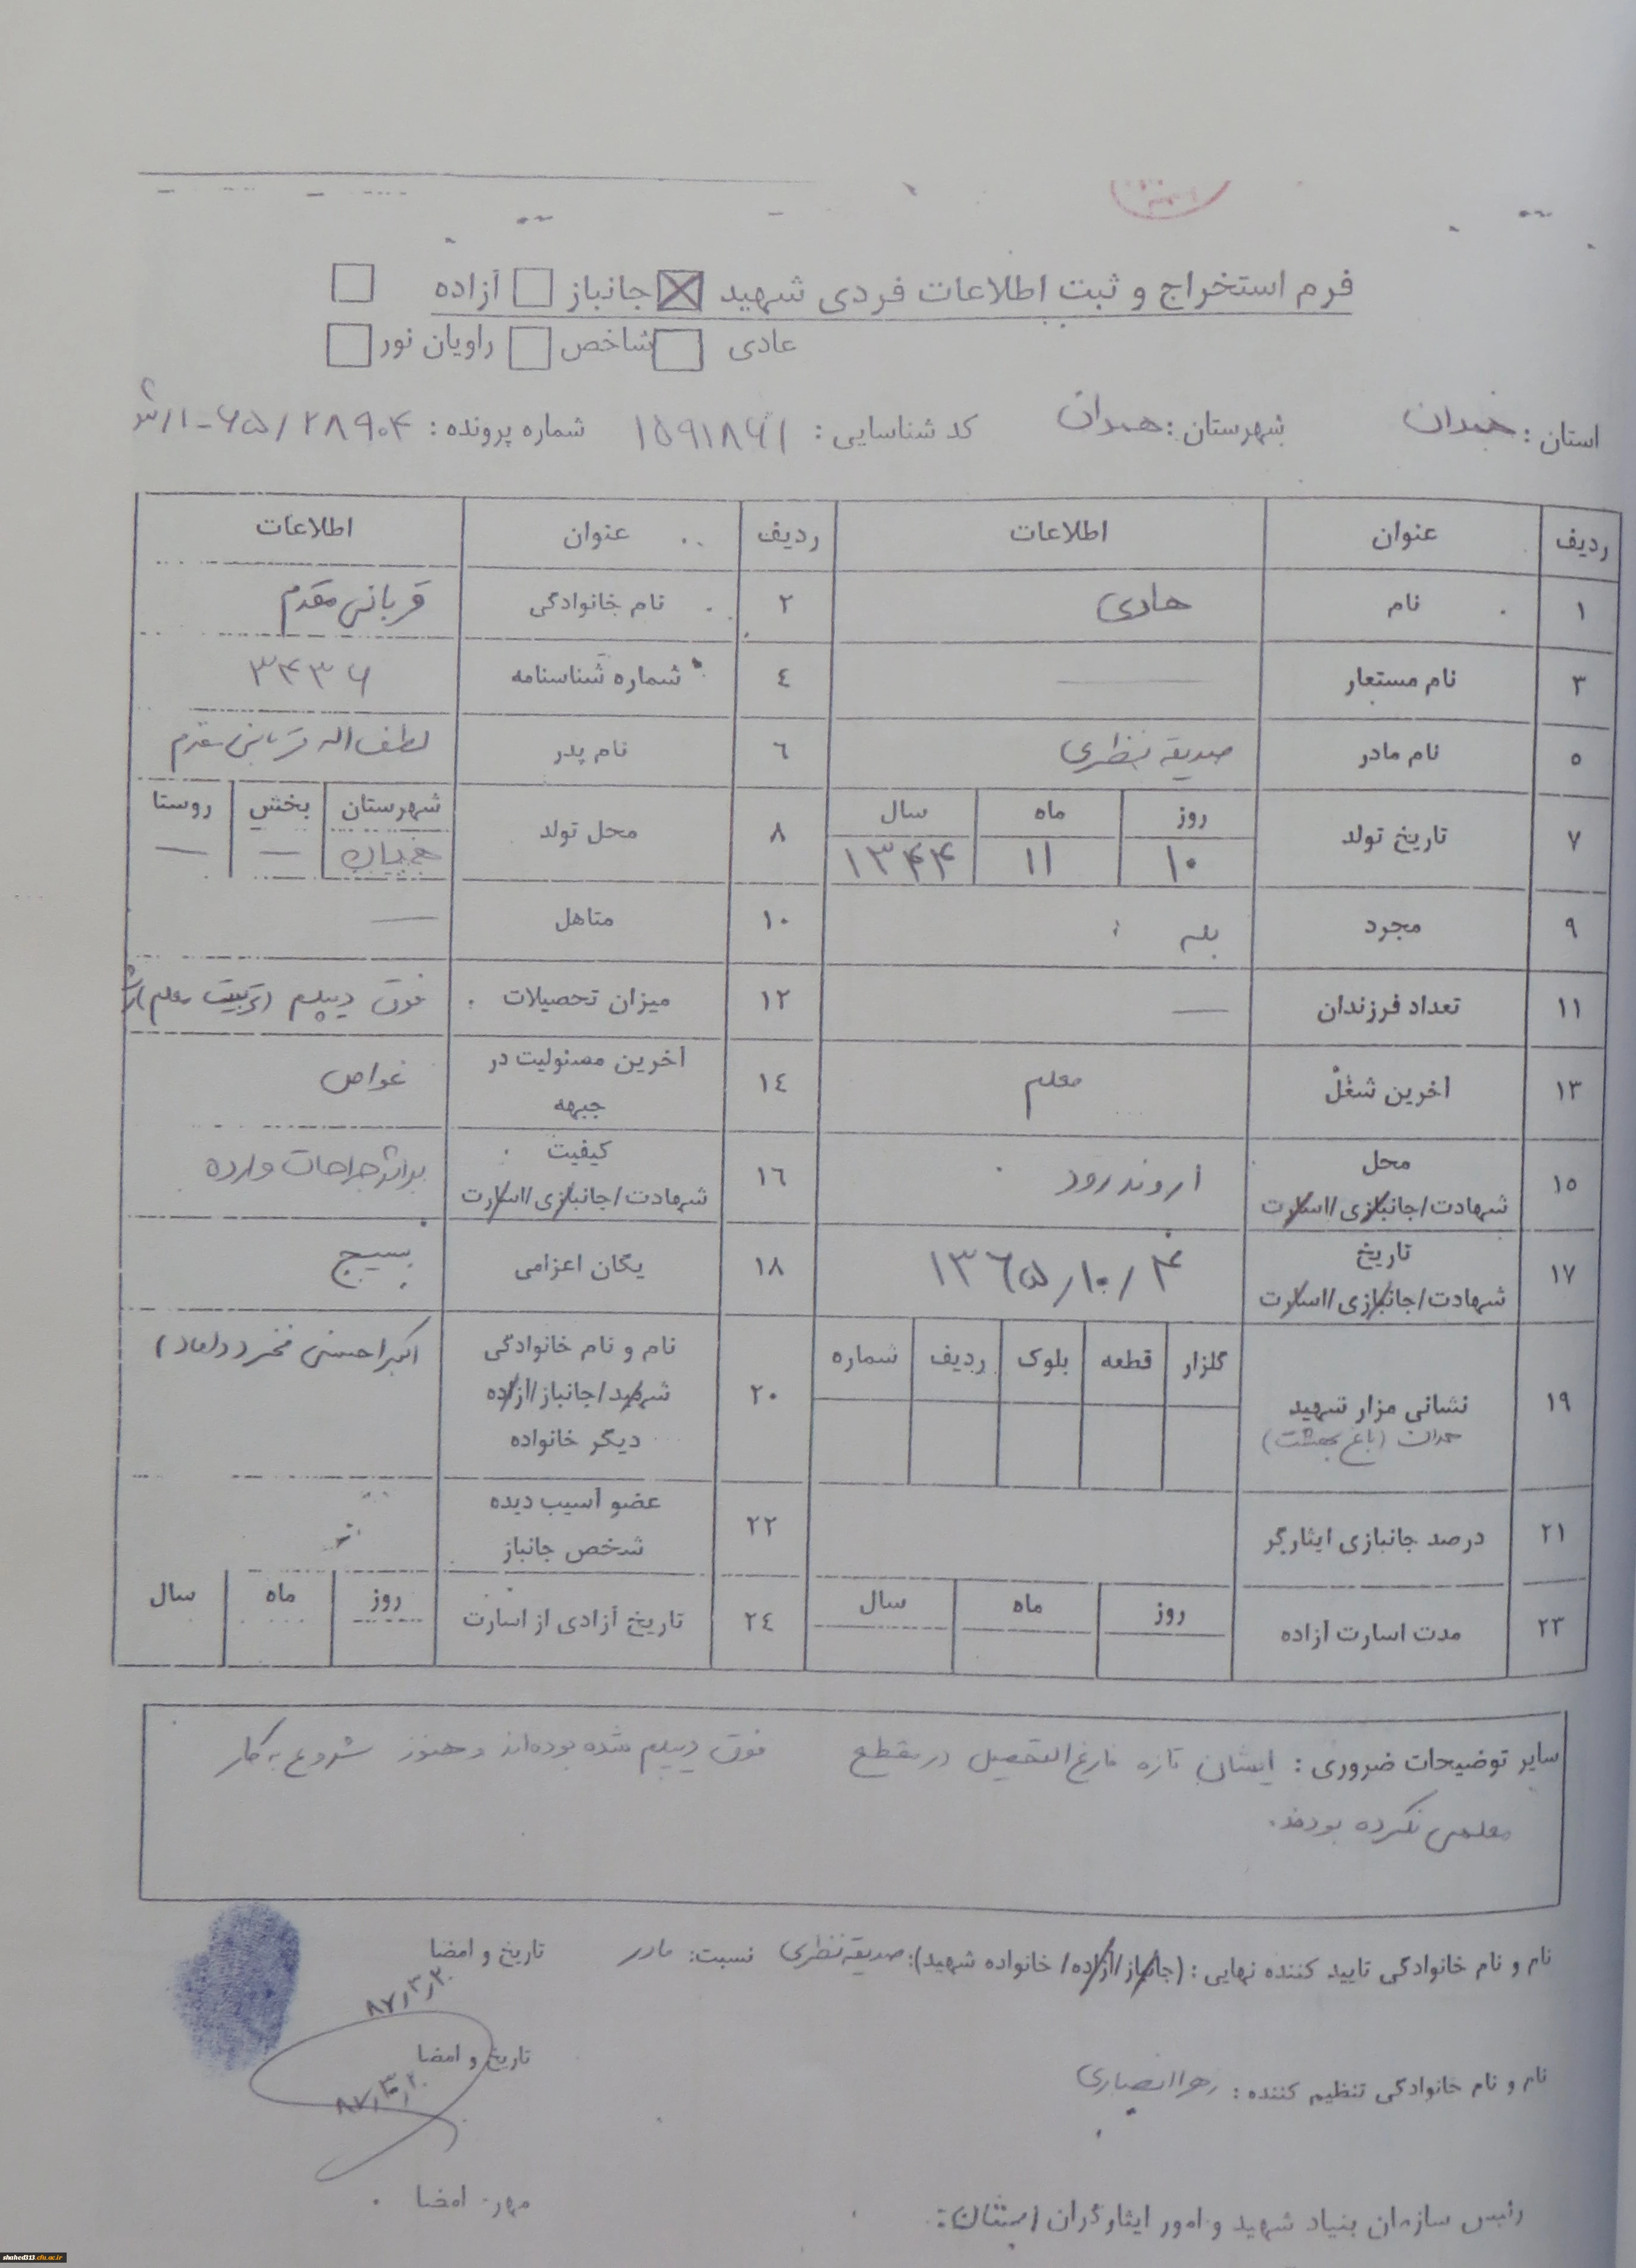 فرم استخراج و ثبت اطلاعات فردی شهید ☒ جانباز □ آزاده □
عادی □ شاخص □ راویان نور □
استان : همدان شهرستان : همدان کد شناسایی : ۱۵۹۱۸۶۱ شماره پرونده : ۲۸۹۰۴/۶۵-۱/
ردیف عنوان اطلاعات ردیف عنوان اطلاعات
۱ نام هادی ۲ نام خانوادگی قربانی مقدم
۳ نام مستعار — ٤ شماره شناسنامه ۳۴۳۶
۵ نام مادر صدیقه نظری ٦ نام پدر لطف اله قربانی مقدم
۷ تاریخ تولد روز ماه سال ۸ محل تولد شهرستان بخش روستا
۱۰ ۱۱ ۱۳۴۴ همدان — —
۹ مجرد بله ۱۰ متاهل —
۱۱ تعداد فرزندان — ۱۲ میزان تحصیلات فوق دیپلم (تربیت معلم)
۱۳ آخرین شغل معلم ۱٤ آخرین مسئولیت در
جبهه غواص
۱۵ محل
شهادت/جانبازی/اسارت اروندرود ۱٦ کیفیت
شهادت/جانبازی/اسارت براثر جراحات وارده
۱۷ تاریخ
شهادت/جانبازی/اسارت ۱۳٦۵/۱۰/۴ ۱۸ یگان اعزامی بسیج
۱۹ نشانی مزار شهید
همدان (باغ بهشت) گلزار قطعه بلوک ردیف شماره
۲۰ نام و نام خانوادگی
شهید/جانباز/آزاده
دیگر خانواده اکبر احسنی فخر (داماد)
۲۱ درصد جانبازی ایثارگر ۲۲ عضو آسیب دیده
شخص جانباز
۲۳ مدت اسارت آزاده روز ماه سال ۲٤ تاریخ آزادی از اسارت روز ماه سال
سایر توضیحات ضروری : ایشان تازه فارغ التحصیل در مقطع فوق دیپلم شده بوده‌اند و هنوز شروع به کار
معلمی نکرده بودند.
نام و نام خانوادگی تایید کننده نهایی : (جانباز/آزاده/خانواده شهید): صدیقه نظری نسبت: مادر تاریخ و امضا
۸۷/۳/۲۰
نام و نام خانوادگی تنظیم کننده : زهرا انصاری تاریخ و امضا
۸۷/۳/۲۰
رئیس سازمان بنیاد شهید و امور ایثارگران مهر. امضا
shahed313.cfu.ac.ir